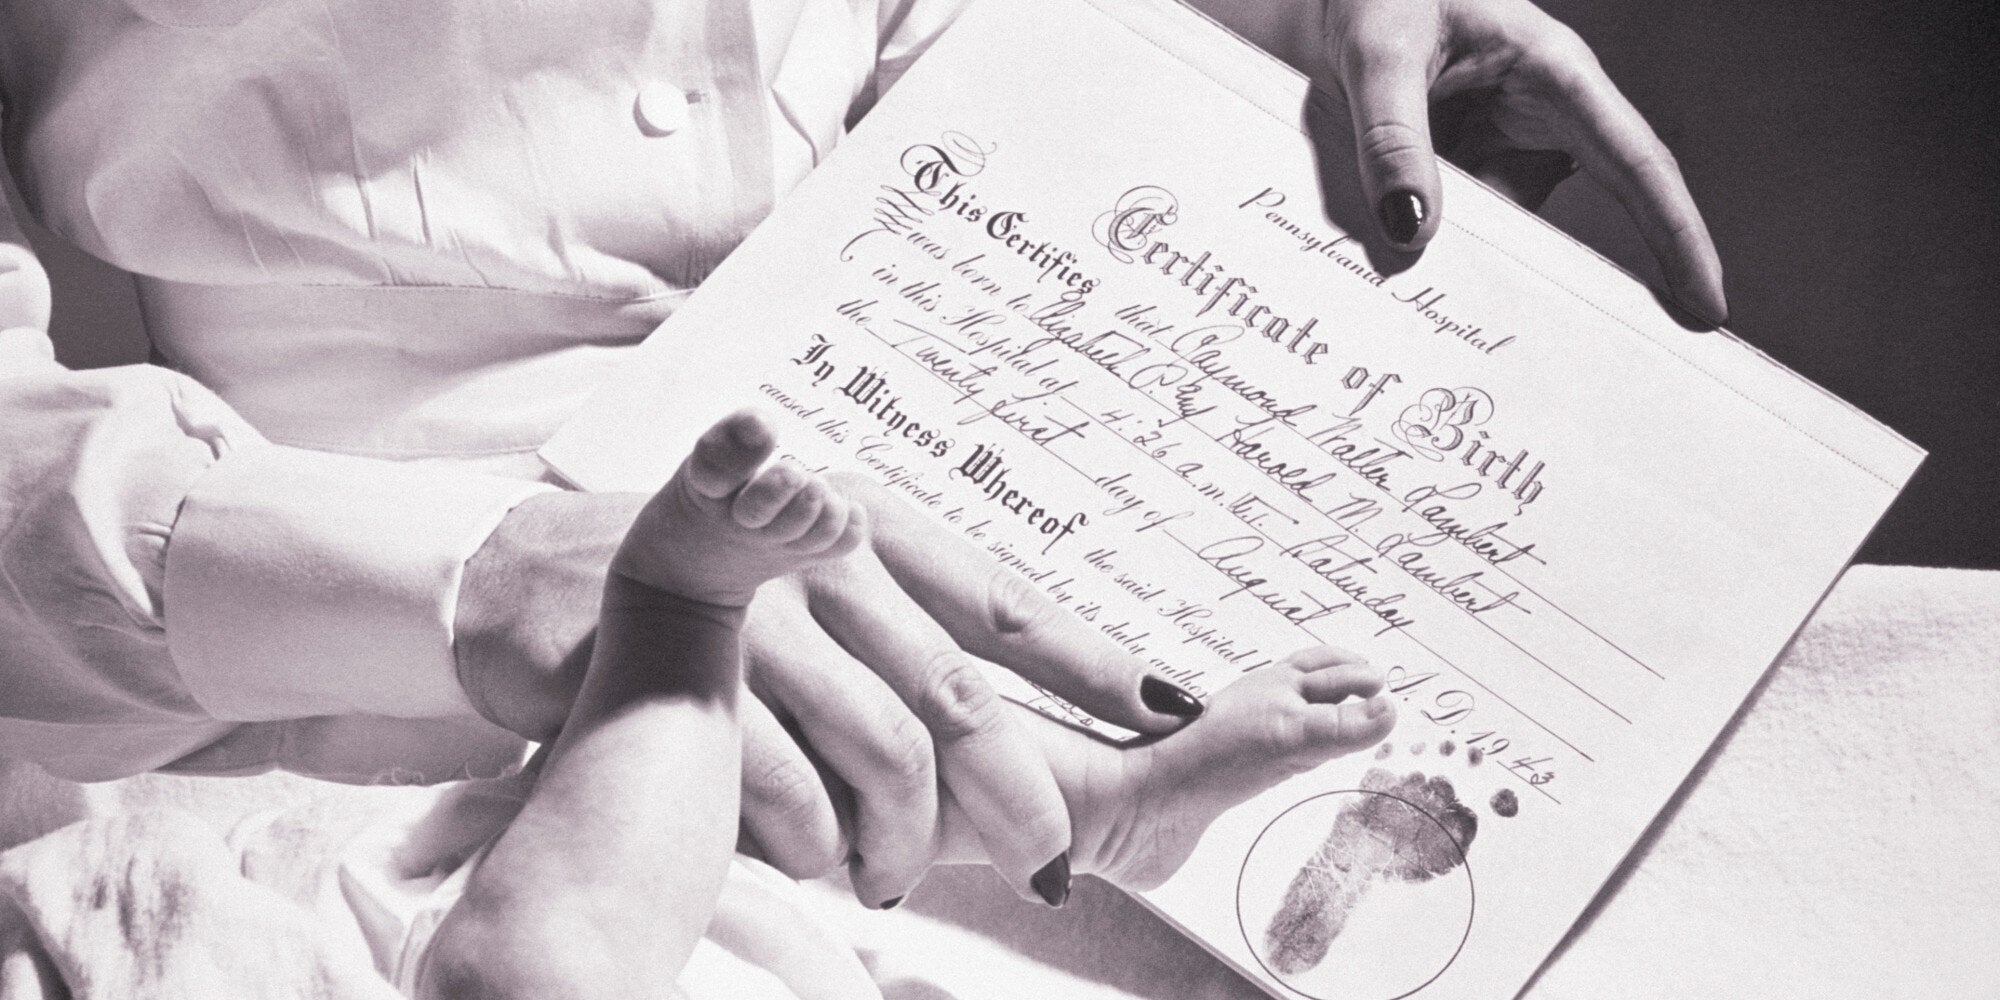 Pennsylvania Hospital
Certificate of Birth
This Certifies that Raymond Walter Lambert
was born to Elizabeth P. & Harold M. Lambert
in this Hospital at 4:26 a.m. Saturday
the Twenty first day of August A.D. 1943
In Witness Whereof the said Hospital
caused this Certificate to be signed by its duly